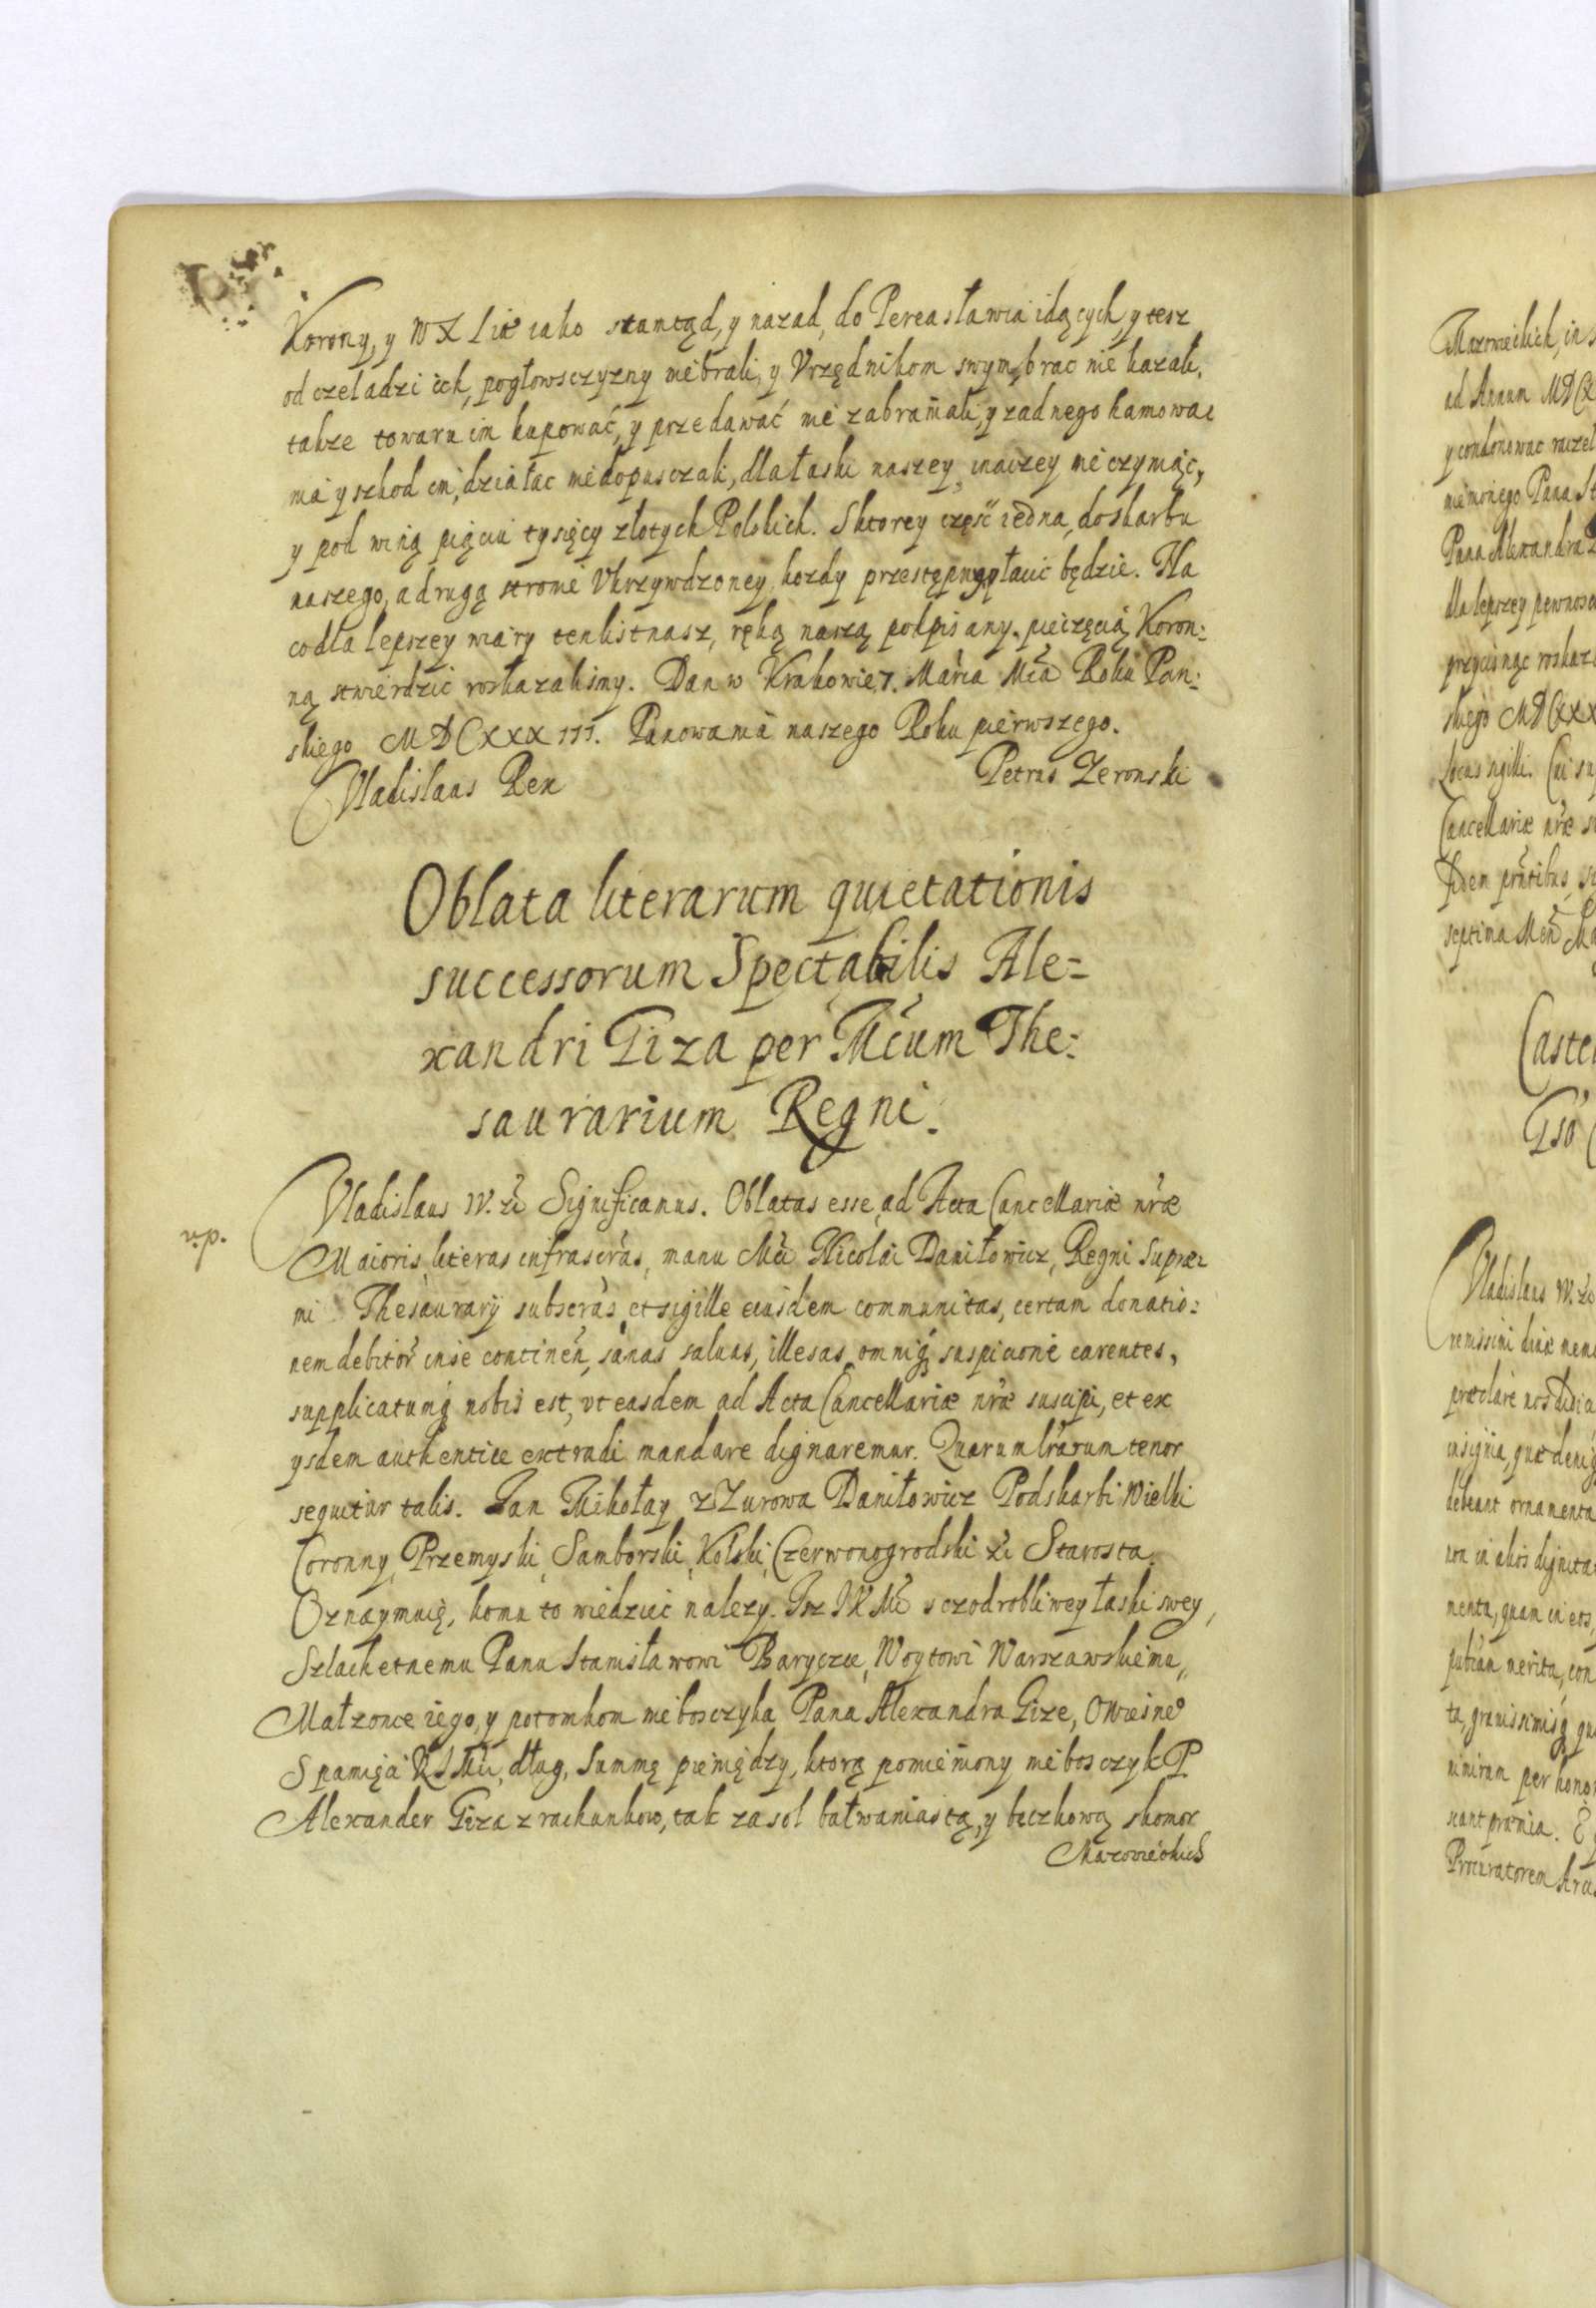 Korony, y WX Litt iako stamtąd, y nazad, do Pereasławia idących y tesz
od czeladzi ich, pogłowsczyzny niebrali, y Vrzędnikom swym, brac nie kazali,
takze towaru im kupować, y przedawać nie zabraniali, y zadnego hamowa
nia y szkod im, działac niedopusczali, dla łaski naszey, inaczey nie czyniąc,
y pod winą piąciu tysięcy złotych Polskich. Sktorey część iedna, do skarbu
naszego, a drugą stronie Vkrzywdzoney, kozdy przestępny płacic będzie. Na
co dla lepszey wiary ten list nasz, ręką naszą podpisany, pieczęcią Koron:
ną stwierdzic roskazalismy. Dan w Krakowie 7. Marca Mca Roku Pan:
skiego MDCXXXIII. Panowania naszego Roku pierwszego.
Vladislaus Rex Petrus Zeronski
Oblata literarum quietationis
successorum Spectabilis Ale=
xandri Giza per Mcum The:
saurarium Regni.
Vladislaus IV. etc Significamus. Oblatas esse, ad Acta Cancellariæ nræ
Maioris, literas infrascras, manu Mci Nicolai Daniłowicz, Regni Supre:
mi Thesaurarij subscras, et sigille eiusdem communitas, certam donatio:
nem debitor in se continen, sanas saluas, illesas, omniq suspicione carentes,
supplicatumq nobis est, vt easdem ad Acta Cancellariæ nræ suscipi, et ex
ysdem authentice extradi mandare dignaremur. Quarum lrarum tenor
sequitur talis. Jan Mikołay z Zurowa Daniłowicz Podskarbi Wielki
Coronny, Przemyski, Samborski, Kolski, Czerwonogrodski etc Starosta.
Oznaymuię, komu to wiedziec nalezy. Isz JKMc sczodrobliwey łaski swey,
Szlachetnemu Panu Stanisławowi Baryczce, Woytowi Warszawskiemu,
Małzonce iego, y potomkom nieboszczyka Pana Alexandra Gize,
Spamięci KJMci, dług, Summę pieniędzy, ktorą pomieniony niebosczyk P
Alexander Giza z rachunkow, tak za sol bałwaniastą, y beczkową skomor
Mazowieckich